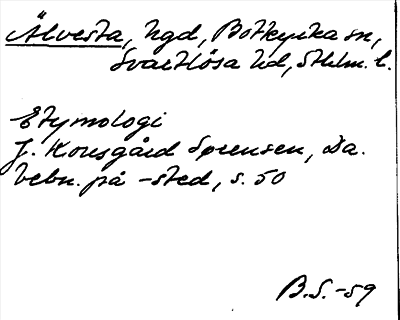 Älvesta, hgd, Botkyrka sn,
Svartlösa hd, Sthlm. l.
Etymologi
J. Kousgård Sørensen, Da.
bebn. på -sted, s. 50
B.S. -59